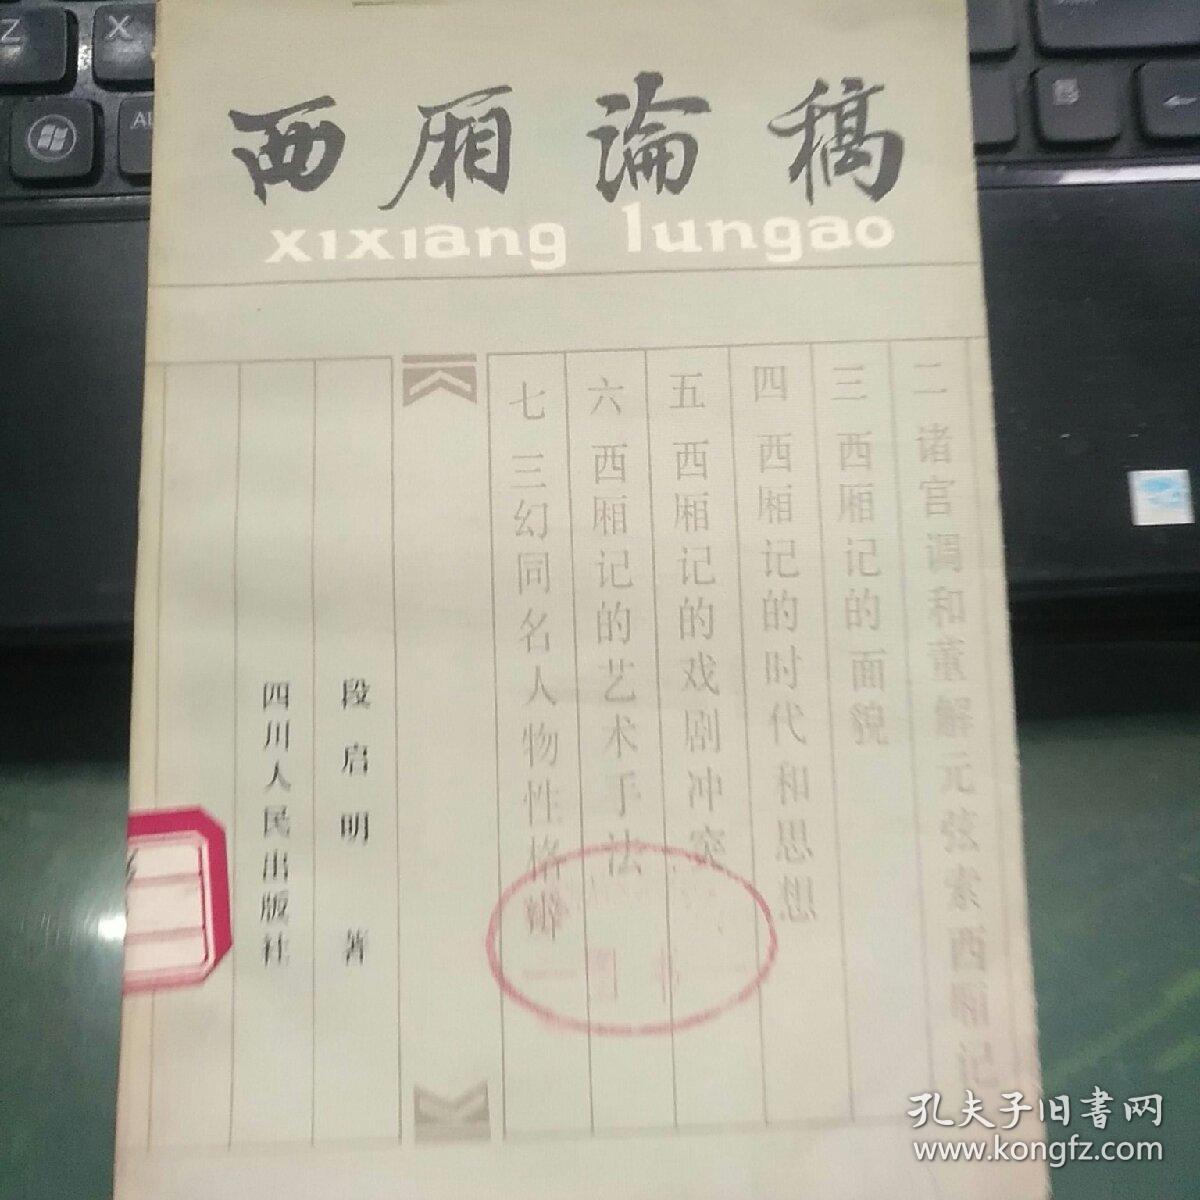 西厢論稿
xixiang lungao
二 诸宫调和董解元弦索西厢记
三 西厢记的面貌
四 西厢记的时代和思想
五 西厢记的戏剧冲突
六 西厢记的艺术手法
七 三幻同名人物性格辨
段启明 著
四川人民出版社
Z
X
孔夫子旧書网
www.kongfz.com